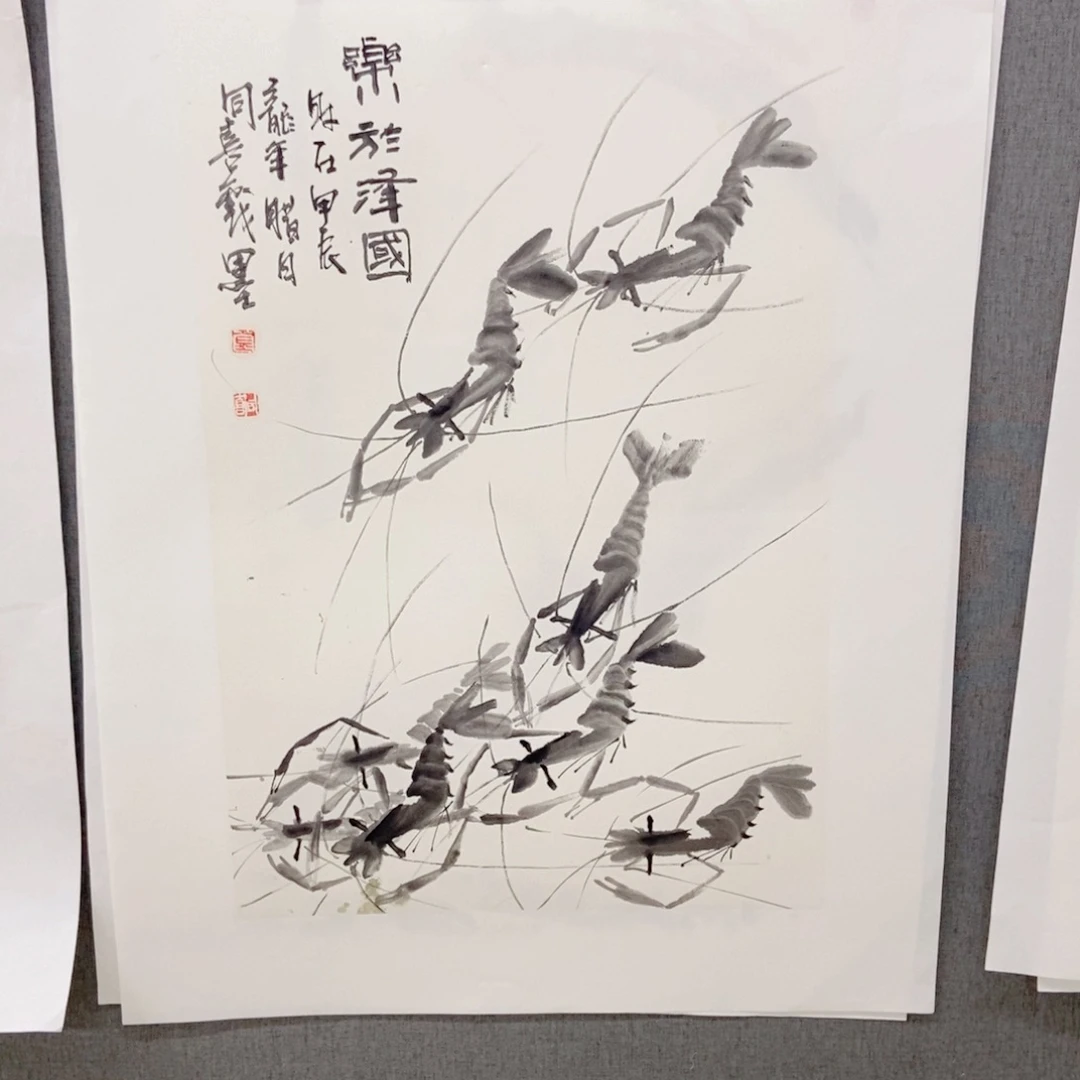 樂於澤國
時在甲辰
龍年腊月
同喜戲墨